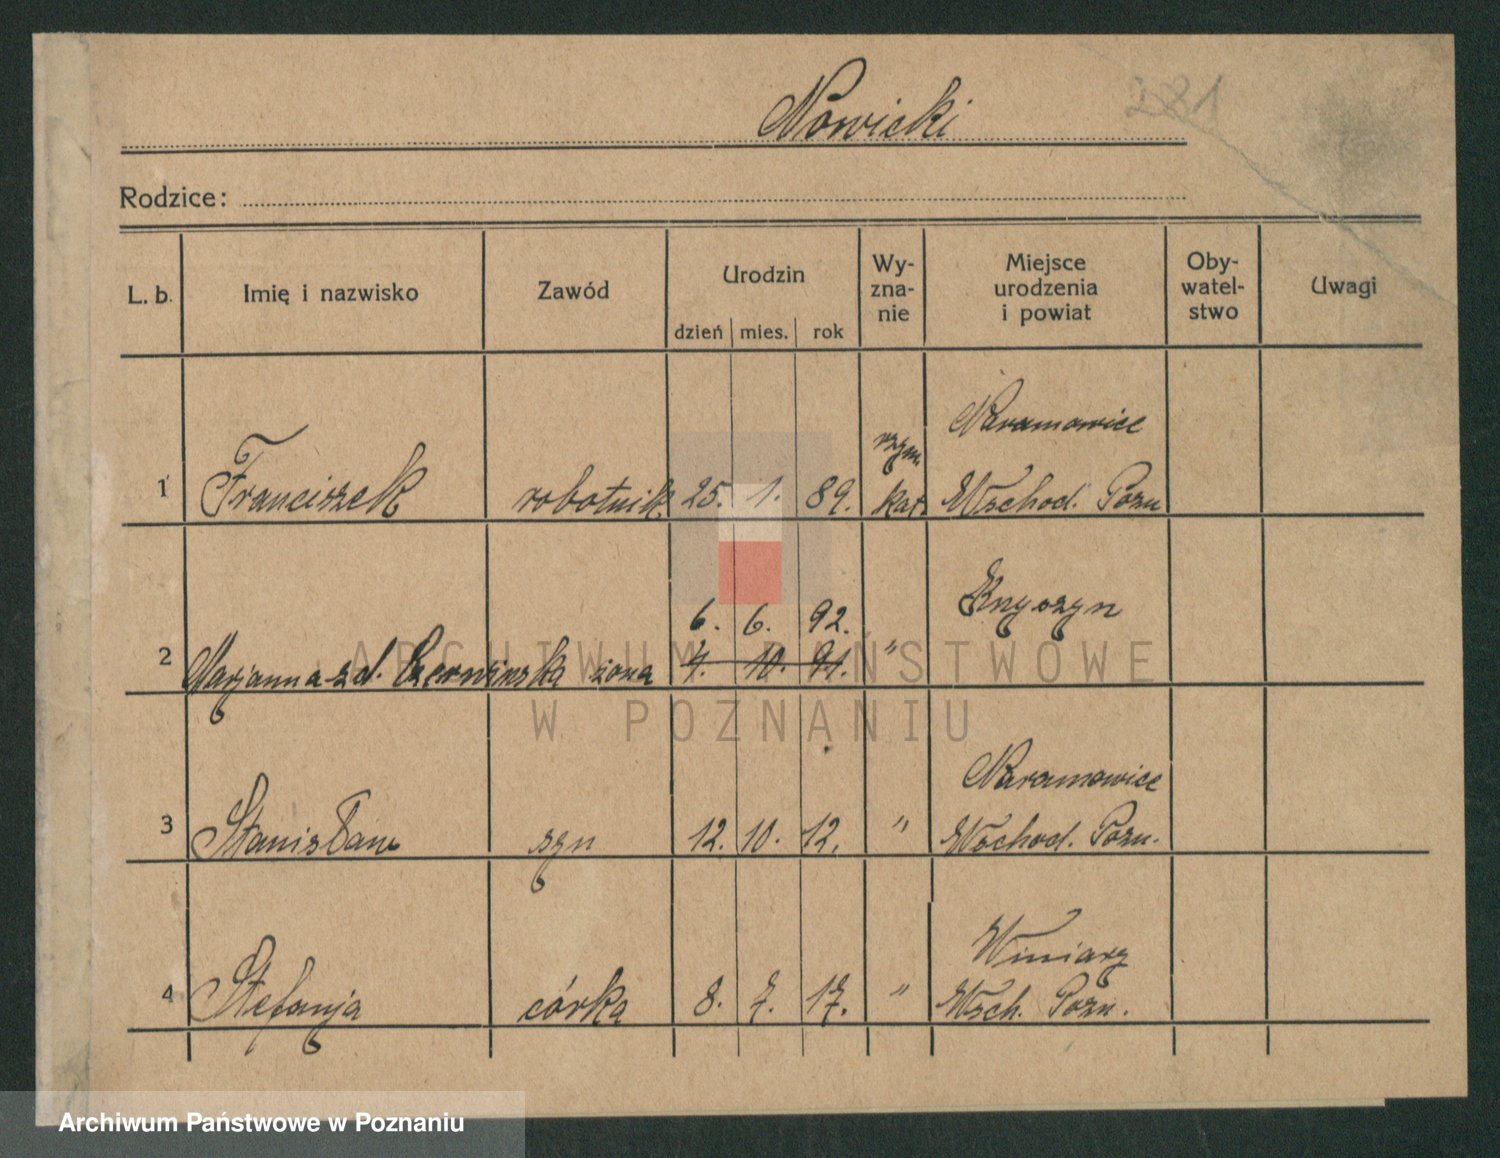 Nowicki
Rodzice:
L. b. Imię i nazwisko Zawód Urodzin dzień mies. rok Wy-zna-nie Miejsce urodzenia i powiat Oby-watel-stwo Uwagi
Naramowice
rzym.
1 Franciszek robotnik 25. 1. 89. kat. Wschod. Pozn
Knyszyn
6. 6. 92.
2 Marjanna zd. Czerwińska żona 4. 10. 91. "
Naramowice
3 Stanisław syn 12. 10. 12. " Wschod. Pozn.
Winiary
4 Stefanja córka 8. 7. 17. " Wsch. Pozn.
ARCHIWUM PAŃSTWOWE
W POZNANIU
Archiwum Państwowe w Poznaniu